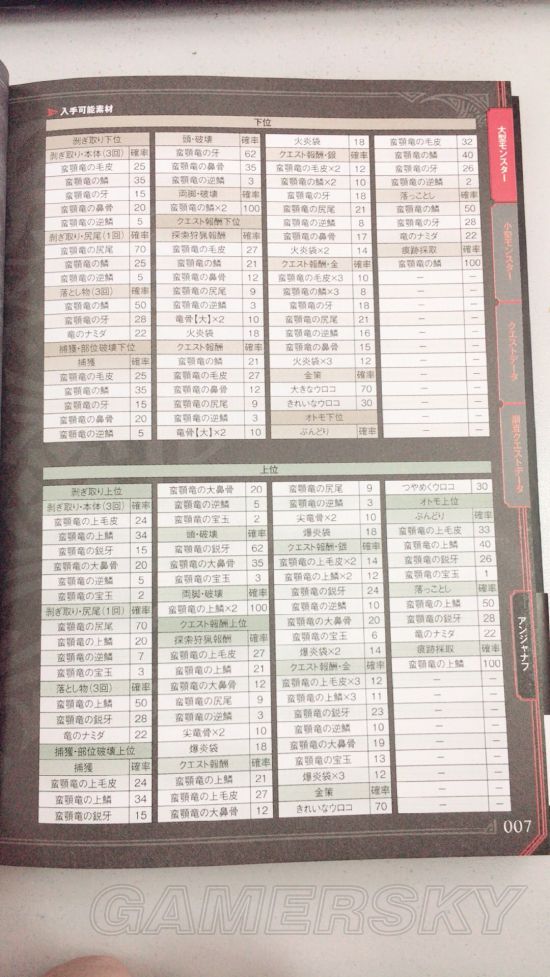 入手可能素材
下位
剥ぎ取り下位
剥ぎ取り・本体(3回) 確率
蛮顎竜の毛皮 25
蛮顎竜の鱗 35
蛮顎竜の牙 15
蛮顎竜の鼻骨 20
蛮顎竜の逆鱗 5
剥ぎ取り・尻尾(1回) 確率
蛮顎竜の尻尾 70
蛮顎竜の鱗 25
蛮顎竜の逆鱗 5
落とし物(3回) 確率
蛮顎竜の鱗 50
蛮顎竜の牙 28
竜のナミダ 22
捕獲・部位破壊下位
捕獲 確率
蛮顎竜の毛皮 25
蛮顎竜の鱗 35
蛮顎竜の牙 15
蛮顎竜の鼻骨 20
蛮顎竜の逆鱗 5
頭・破壊 確率
蛮顎竜の牙 62
蛮顎竜の鼻骨 35
蛮顎竜の逆鱗 3
両脚・破壊 確率
蛮顎竜の鱗×2 100
クエスト報酬下位
探索狩猟報酬 確率
蛮顎竜の毛皮 27
蛮顎竜の鱗 21
蛮顎竜の鼻骨 12
蛮顎竜の尻尾 9
蛮顎竜の逆鱗 3
竜骨【大】×2 10
火炎袋 18
クエスト報酬 確率
蛮顎竜の鱗 21
蛮顎竜の毛皮 27
蛮顎竜の鼻骨 12
蛮顎竜の尻尾 9
蛮顎竜の逆鱗 3
竜骨【大】×2 10
火炎袋 18
クエスト報酬・銀 確率
蛮顎竜の毛皮×2 12
蛮顎竜の鱗×2 10
蛮顎竜の牙 18
蛮顎竜の尻尾 21
蛮顎竜の逆鱗 8
蛮顎竜の鼻骨 17
火炎袋×2 14
クエスト報酬・金 確率
蛮顎竜の毛皮×3 10
蛮顎竜の鱗×3 8
蛮顎竜の牙 18
蛮顎竜の尻尾 21
蛮顎竜の逆鱗 16
蛮顎竜の鼻骨 15
火炎袋×3 12
金策 確率
大きなウロコ 70
きれいなウロコ 30
オトモ下位
ぶんどり 確率
蛮顎竜の毛皮 32
蛮顎竜の鱗 40
蛮顎竜の牙 26
蛮顎竜の逆鱗 2
落っことし 確率
蛮顎竜の鱗 50
蛮顎竜の牙 28
竜のナミダ 22
痕跡採取 確率
蛮顎竜の鱗 100
ー ー
ー ー
ー ー
ー ー
ー ー
ー ー
ー ー
ー ー
ー ー
ー ー
ー ー
ー ー
上位
剥ぎ取り上位
剥ぎ取り・本体(3回) 確率
蛮顎竜の上毛皮 24
蛮顎竜の上鱗 34
蛮顎竜の鋭牙 15
蛮顎竜の大鼻骨 20
蛮顎竜の逆鱗 5
蛮顎竜の宝玉 2
剥ぎ取り・尻尾(1回) 確率
蛮顎竜の尻尾 70
蛮顎竜の上鱗 20
蛮顎竜の逆鱗 7
蛮顎竜の宝玉 3
落とし物(3回) 確率
蛮顎竜の上鱗 50
蛮顎竜の鋭牙 28
竜のナミダ 22
捕獲・部位破壊上位
捕獲 確率
蛮顎竜の上毛皮 24
蛮顎竜の上鱗 34
蛮顎竜の鋭牙 15
蛮顎竜の大鼻骨 20
蛮顎竜の逆鱗 5
蛮顎竜の宝玉 2
頭・破壊 確率
蛮顎竜の鋭牙 62
蛮顎竜の大鼻骨 35
蛮顎竜の宝玉 3
両脚・破壊 確率
蛮顎竜の上鱗×2 100
クエスト報酬上位
探索狩猟報酬 確率
蛮顎竜の上毛皮 27
蛮顎竜の上鱗 21
蛮顎竜の大鼻骨 12
蛮顎竜の尻尾 9
蛮顎竜の逆鱗 3
尖竜骨×2 10
爆炎袋 18
クエスト報酬 確率
蛮顎竜の上鱗 21
蛮顎竜の上毛皮 27
蛮顎竜の大鼻骨 12
蛮顎竜の尻尾 9
蛮顎竜の逆鱗 3
尖竜骨×2 10
爆炎袋 18
クエスト報酬・銀 確率
蛮顎竜の上毛皮×2 14
蛮顎竜の上鱗×2 12
蛮顎竜の鋭牙 24
蛮顎竜の逆鱗 10
蛮顎竜の大鼻骨 20
蛮顎竜の宝玉 6
爆炎袋×2 14
クエスト報酬・金 確率
蛮顎竜の上毛皮×3 12
蛮顎竜の上鱗×3 11
蛮顎竜の鋭牙 23
蛮顎竜の逆鱗 10
蛮顎竜の大鼻骨 19
蛮顎竜の宝玉 13
爆炎袋×3 12
金策 確率
きれいなウロコ 70
つやめくウロコ 30
オトモ上位
ぶんどり 確率
蛮顎竜の上毛皮 33
蛮顎竜の上鱗 40
蛮顎竜の鋭牙 26
蛮顎竜の宝玉 1
落っことし 確率
蛮顎竜の上鱗 50
蛮顎竜の鋭牙 28
竜のナミダ 22
痕跡採取 確率
蛮顎竜の上鱗 100
ー ー
ー ー
ー ー
ー ー
ー ー
ー ー
ー ー
ー ー
大型モンスター
小型モンスター
クエストデータ
調査クエストデータ
アンジャナフ
007
GAMERSKY